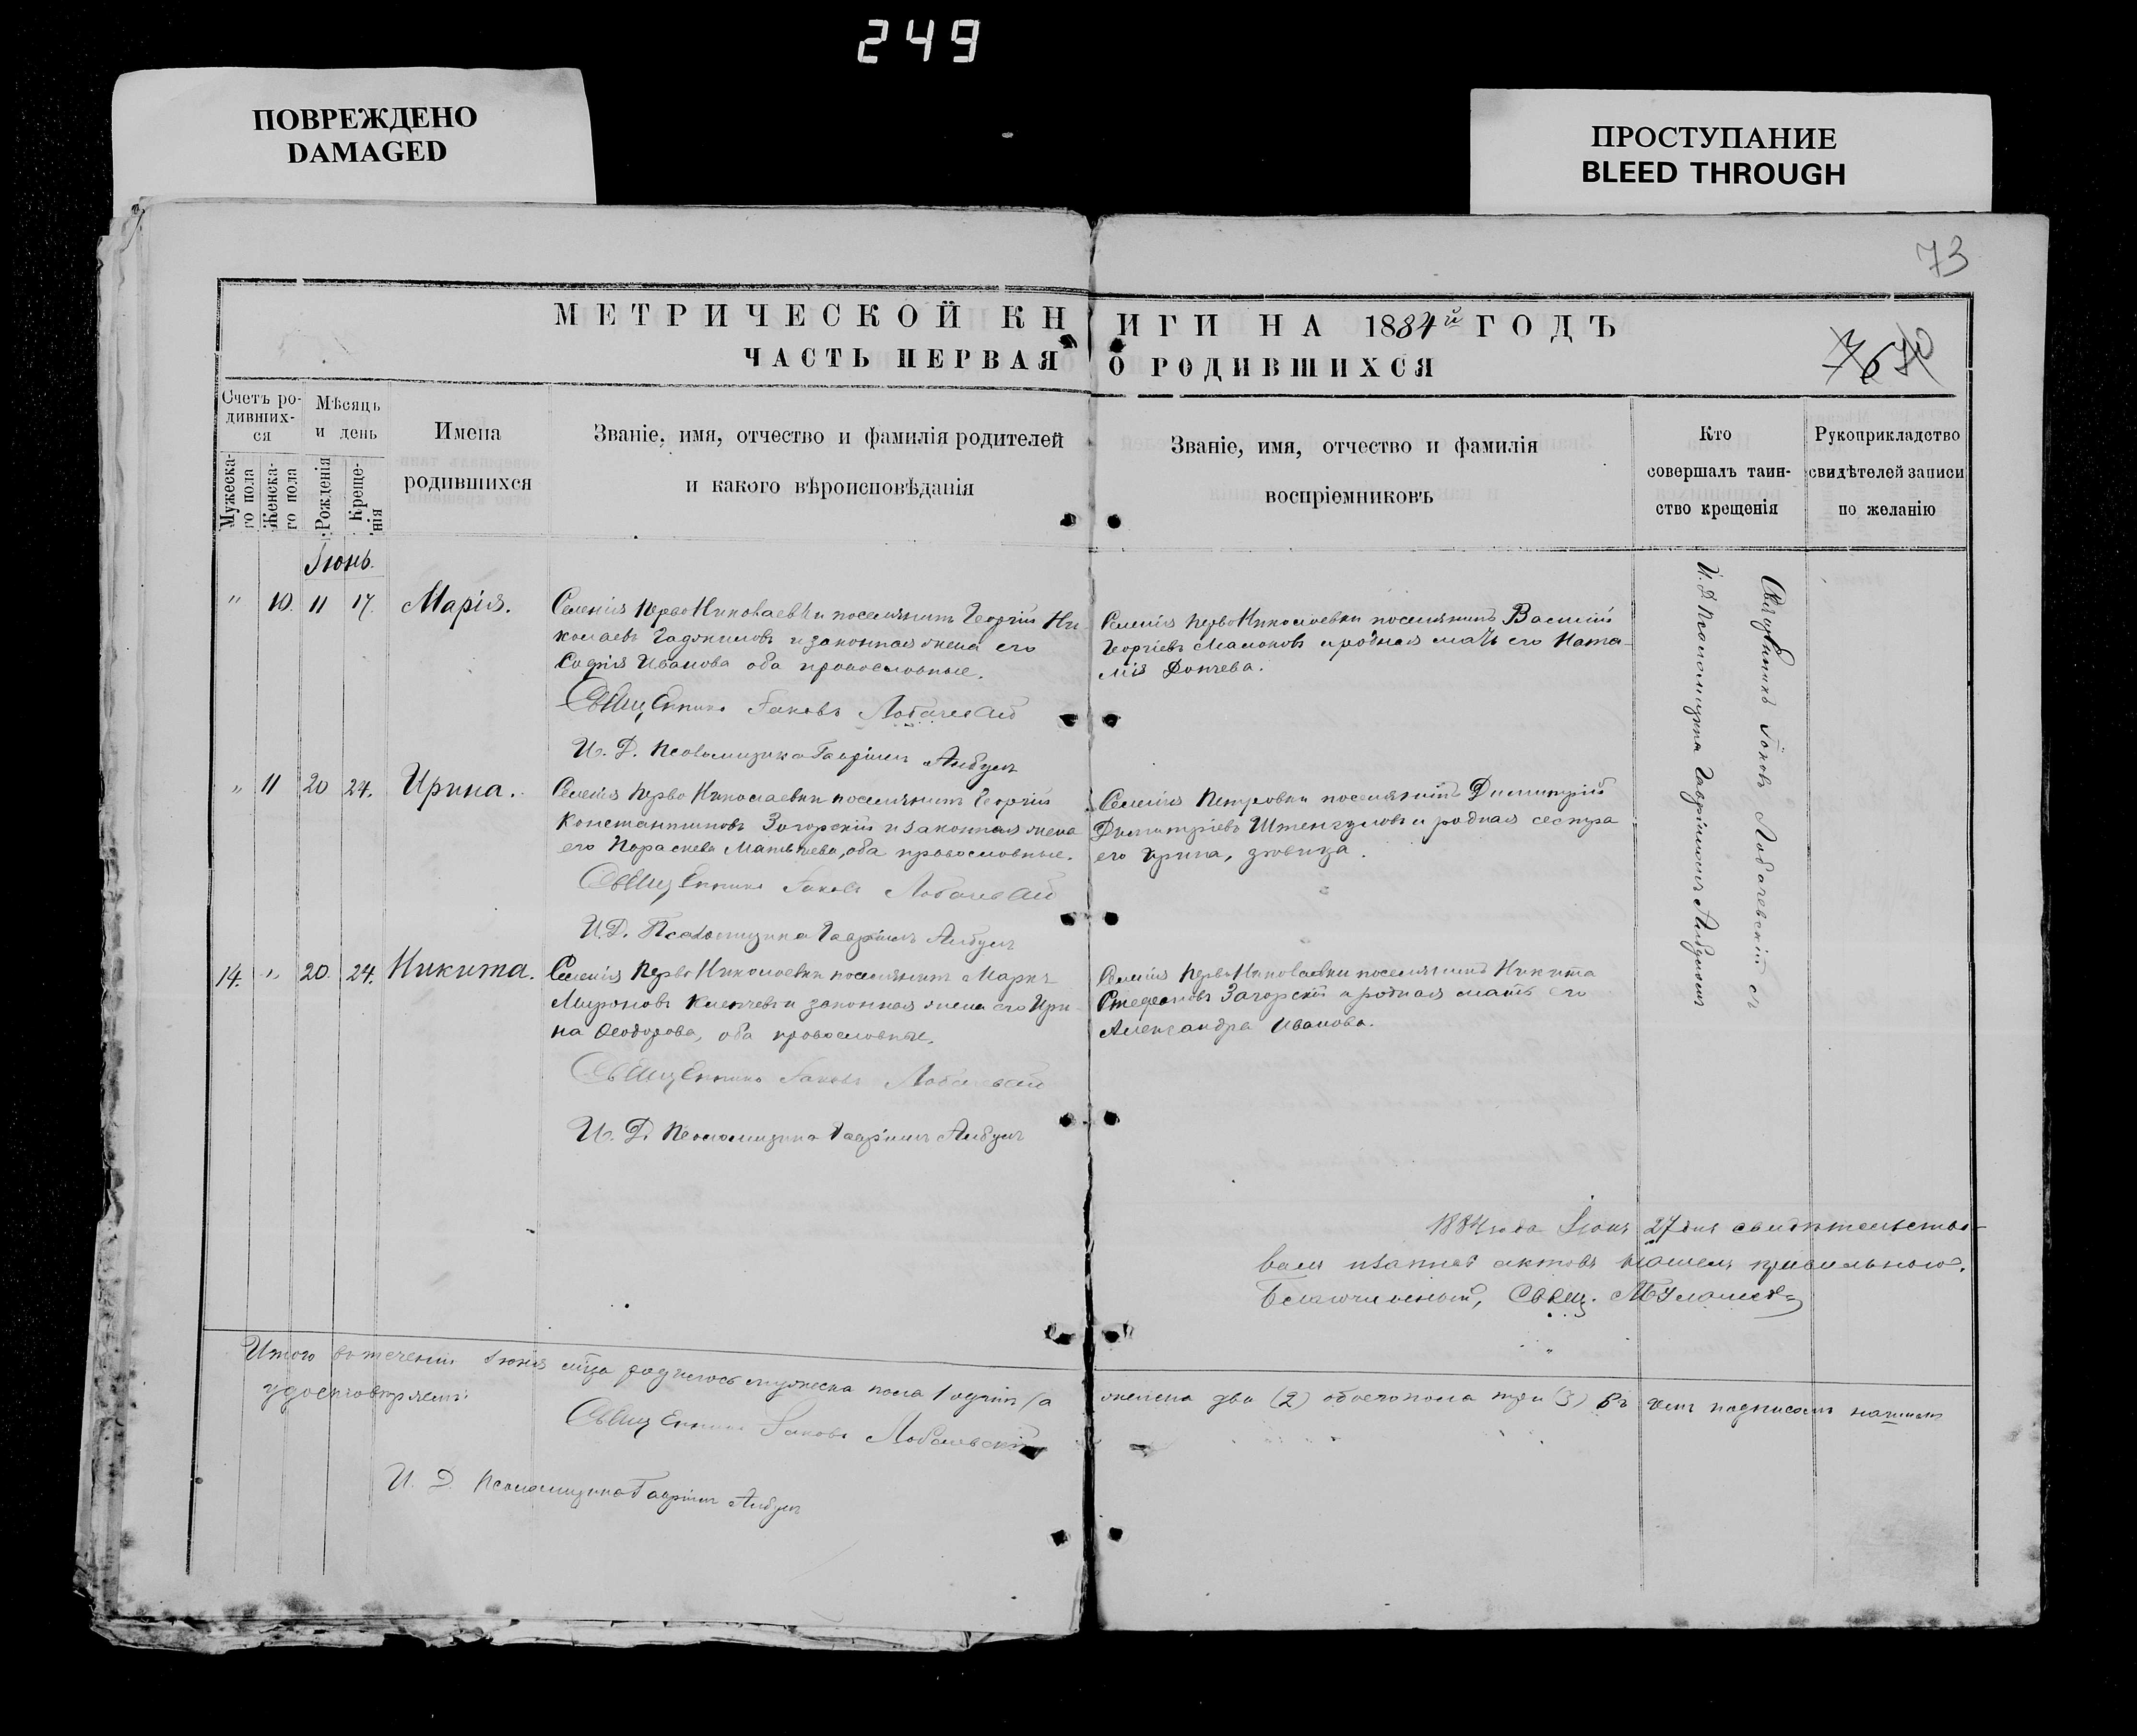 249
ПОВРЕЖДЕНО
DAMAGED
ПРОСТУПАНИЕ
BLEED THROUGH
73
МЕТРИЧЕСКОЙ КНИГИ НА 1884й ГОДЪ
ЧАСТЬ ПЕРВАЯ О РОДИВШИХСЯ
Счетъ ро-
дивших-
ся
Мужеска-
го пола
Женска-
го пола
Мѣсяцъ
и день
Рожденія
Креще-
нія
Имена
родившихся
Званіе, имя, отчество и фамилія родителей
и какого вѣроисповѣданія
Званіе, имя, отчество и фамилія
воспріемниковъ
Кто
совершалъ таин-
ство крещенія
Рукоприкладство
свидѣтелей записи
по желанію
Іюнь.
" 10. 11 17. Марія.
Селенія Перво Николаевки поселянинъ Георгій Ни-
колаевъ и законная жена его
Софія Иванова оба православные.
Священникъ Іаковъ Лобачевскій
И. Д. Псаломщика Гавріилъ Албулъ
Селенія Перво Николаевки поселянинъ Василій
Георгіевъ и родная мать его Ната-
лія Дончева.
" 11 20 24. Ирина.
Селенія Перво Николаевки поселянинъ Георгій
Константиновъ Загорскій и законная жена
его Параскева Матвѣева, оба православные.
Священникъ Іаковъ Лобачевскій
И. Д. Псаломщика Гавріилъ Албулъ
Селенія Петровки поселянинъ Димитрій
Димитріевъ и родная сестра
его Ирина, дѣвица.
14. " 20. 24. Никита.
Селенія Перво Николаевки поселянинъ Маркъ
Мироновъ и законная жена его Ири-
на Ѳеодорова, оба православные.
Священникъ Іаковъ Лобачевскій
И. Д. Псаломщика Гавріилъ Албулъ
Селенія Перво Николаевки поселянинъ Никита
Стефановъ Загорскій и родная мать его
Александра Иванова.
Священникъ Іаковъ Лобачевскій съ
И. Д. Псаломщика Гавріиломъ Албуломъ
1884 года Іюня 27 дня свидѣтельство-
валъ и запись актовъ нашелъ правильною.
Благочинный, Свящ.
Итого въ теченіи Іюня мца родилось мужеска пола 1 одинъ (а женска два (2) обоего пола три (3) въ чемъ подписомъ нашимъ
удостовѣряемъ:
Священникъ Іаковъ Лобачевскій
И. Д. Псаломщика Гавріилъ Албулъ